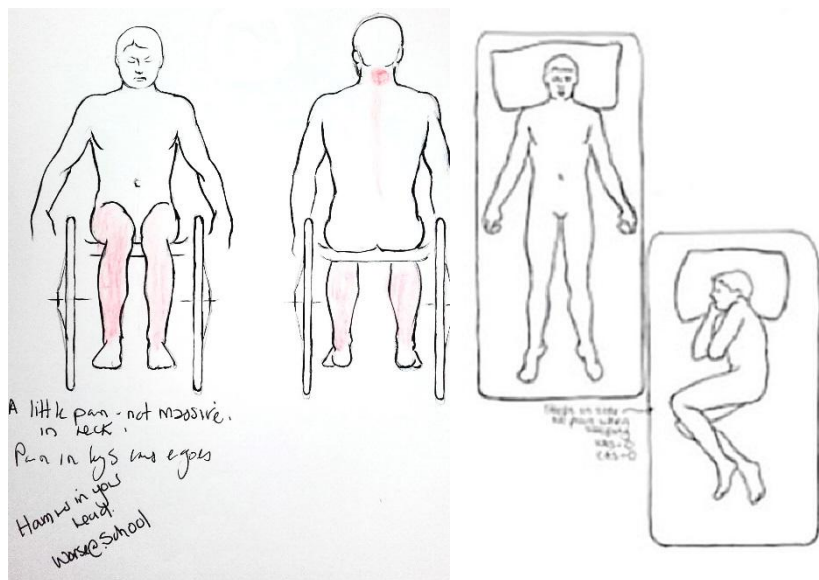 A little pain - not massive.
in neck.
Pain in legs and
Hammers in your
head.
worse@School
Sleeps on side
no pain when
sleeping
VAS-0
CAS-0